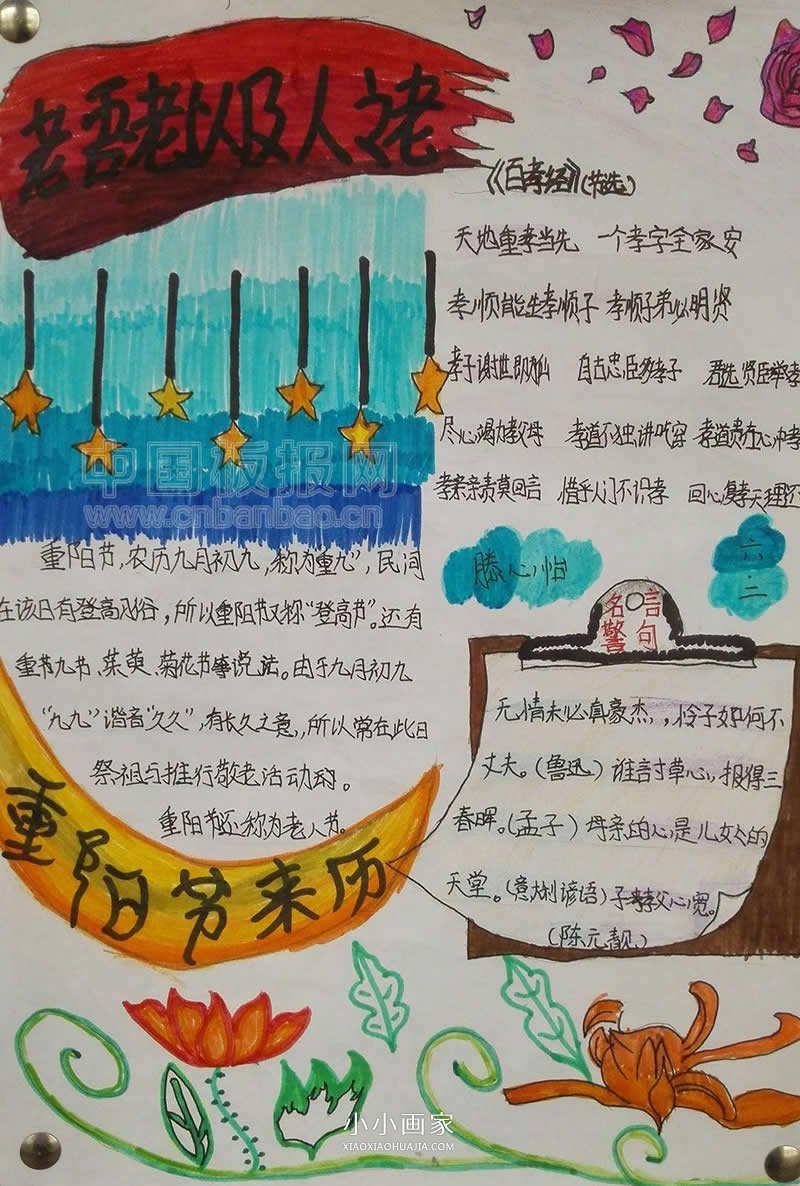 老吾老以及人之老
《百孝经》(节选)
天地重孝当先 一个孝字全家安
孝顺能生孝顺子 孝顺子弟必明贤
孝子谢世即 自古忠臣多孝子 君选贤臣举孝
尽心竭力孝父母 孝道不独讲吃穿 孝道贵在心中孝
孝亲亲责莫回言 惜乎人间不识孝 回心复孝天理还
中国板报网
www.cnbanbao.cn
重阳节,农历九月初九,称为“重九”,民间
在该日有登高习俗,所以重阳节又称“登高节”。还有
重节九节、茱萸、菊花节等说法。由于九月初九
“九九”谐音“久久”,有长久之意,所以常在此日
祭祖与推行敬老活动。
重阳节还称为老人节。
重阳节来历
滕心怡
六·二
名言
警句
无情未必真豪杰,怜子如何不
丈夫。(鲁迅)谁討草心,报得三
春晖。(孟子)母亲的心是儿女的
天堂。(意大利谚语)子孝父心宽。
(陈元靓)
小小画家
XIAOXIAOHUAJIA.COM